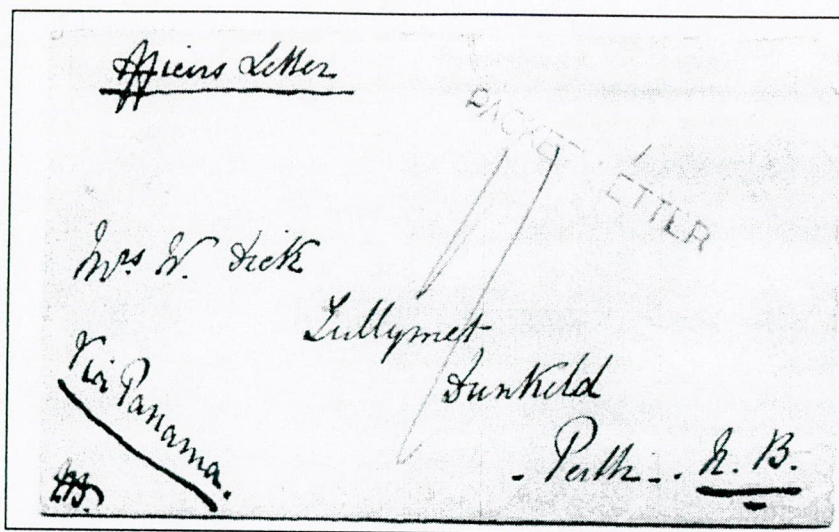 Officers Letter
PACKET LETTER
Mrs W. Dick
Tullymet
Dunkeld
Perth. N. B.
Via Panama.